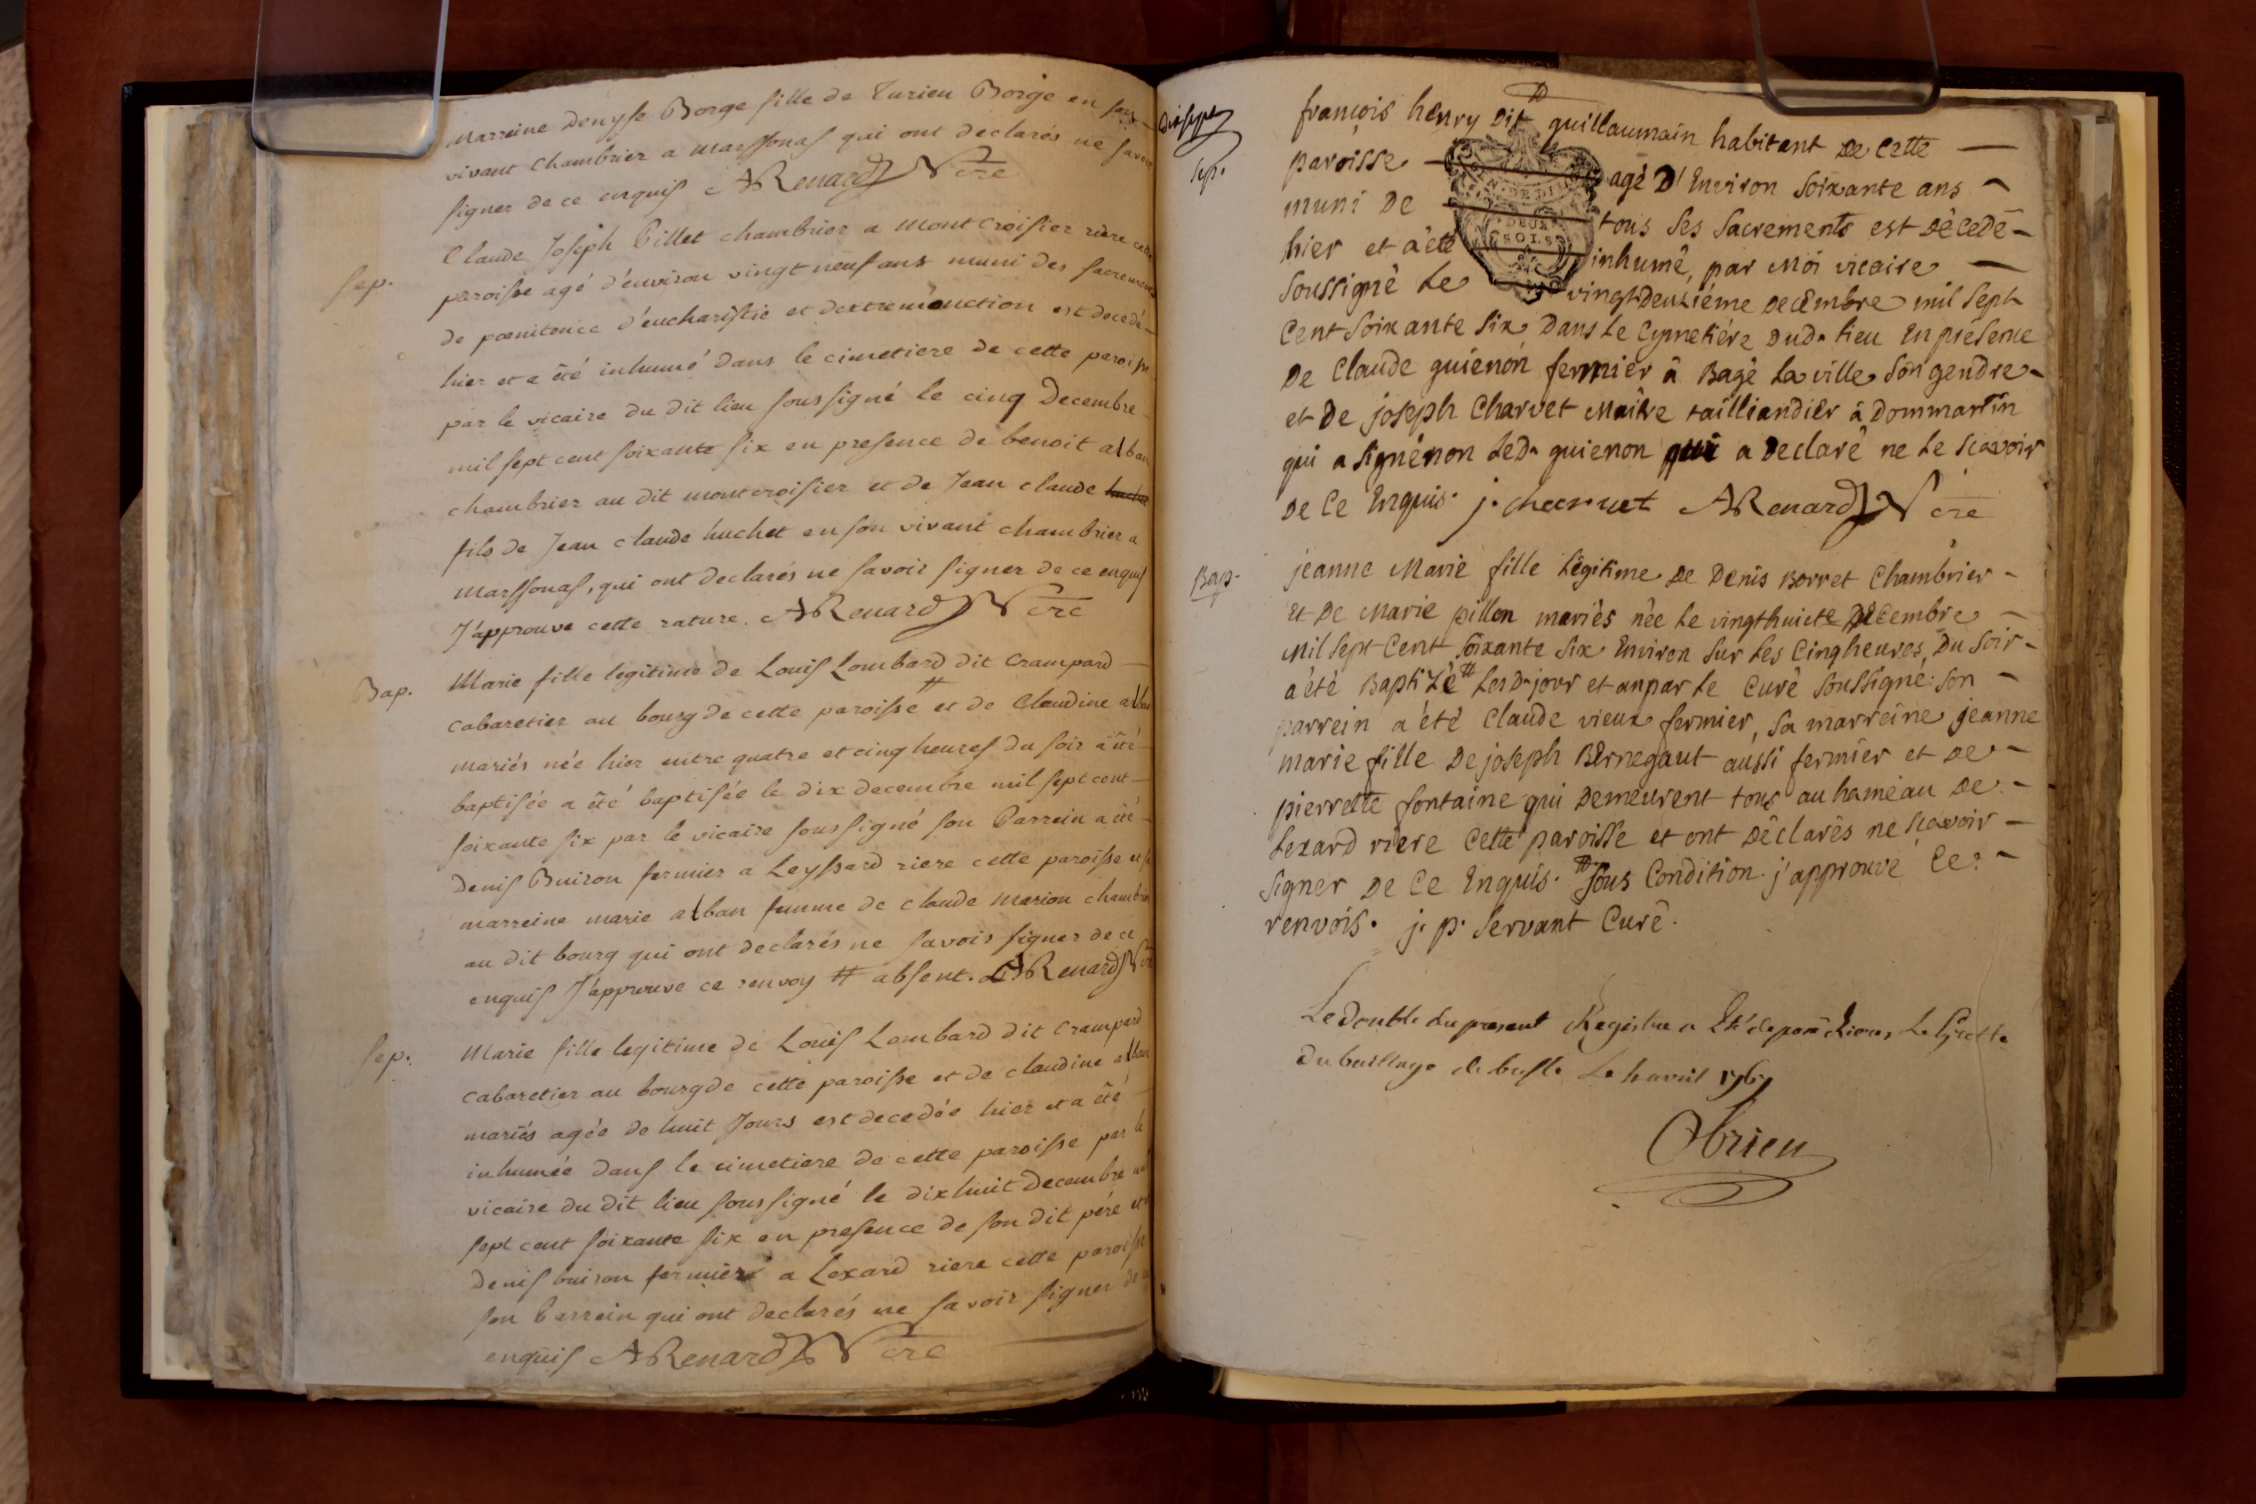 marreine Denyse Borge fille de Turieu Borge en son
vivant chambrier a marssonas qui ont declarés ne savoir
signer de ce enquis ARenard Vcre
sep.
Claude Joseph Pillet chambrier a montcroisier riere cette
paroisse agé d'environ vingt neuf ans muni des sacremens
de pœnitence d'eucharistie et dextremeonction est decedé
hier et a été inhumé dans le cimetiere de cette paroisse
par le vicaire du dit lieu soussigné le cinq Decembre
mil sept cent soixante six en presence de benoit alban
chambrier au dit montcroisier et de Jean claude
fils de Jean claude huchet en son vivant chambrier a
marssonas, qui ont declarés ne savoir signer de ce enquis
J'approuve cette rature. ARenard Vcre
Bap.
Marie fille legitime de Louis Lombard dit crampard
cabaretier au bourg de cette paroisse # et de Claudine alban
mariés née hier entre quatre et cinq heures du soir a été
baptisée a été baptisée le dix decembre mil sept cent
soixante six par le vicaire soussigné son Parrein a été
denis Buiron fermier a Leyssard riere cette paroisse et sa
marreine marie alban femme de claude marion chambrier
au dit bourg qui ont declarés ne savoir signer de ce
enquis J'approuve ce renvoy # absent. ARenard Vcre
sep.
Marie fille legitime de Louis Lombard dit crampard
cabaretier au bourg de cette paroisse et de claudine alban
mariés agée de huit Jours est decedée hier et a été
inhumée dans le cimetiere de cette paroisse par le
vicaire du dit lieu soussigné le dixhuit decembre mil
sept cent soixante six en presence de son dit pere et de
denis buiron fermier a Lexard riere cette paroisse
son Parrein qui ont declarés ne savoir signer de ce
enquis ARenard Vcre
Sep.
françois henry Dit guillaumain habitant De Cette
paroisse agé D'Environ soixante ans
muni De tous ses sacrements est Décedé
hier et a été inhumé, par Moi vicaire
soussigné Le vingtdeuxiéme Decembre mil sept
DEUX
SOLS
Cent soixante six Dans Le Cymetiére Dud. lieu En présence
De Claude guienon fermier à Bagé La ville son gendre
et De joseph Charvet Maitre tailliandier à Dommartin
qui a signé non Led. guienon qui a Declaré ne Le sçavoir
De Ce Enquis. j. charvet ARenard Vcre
Bap.
jeanne Marie fille Légitime De Denis Borret Chambrier
et De Marie pillon mariés née Le vingthuicte Decembre
Mil Sept Cent soixante six Environ sur Les Cinq heures Du soir
a été Baptizé # Lesd. jour et an par Le Curé soussigné: son
parrein a été Claude vieux fermier, sa marreine jeanne
marie fille De joseph Bernegaut aussi fermier et De
pierrette fontaine qui Demeurent tous au hameau De
Lexard riere Cette paroisse et ont Déclarés ne sçavoir
signer De Ce Enquis. # sous Condition. j'approuve Ce
renvois. j. p. Servant Curé.
Le double du present Registre a Eté deposé Riere Le Greffe
du bailliage de bresse Le avril 1767
Obrien